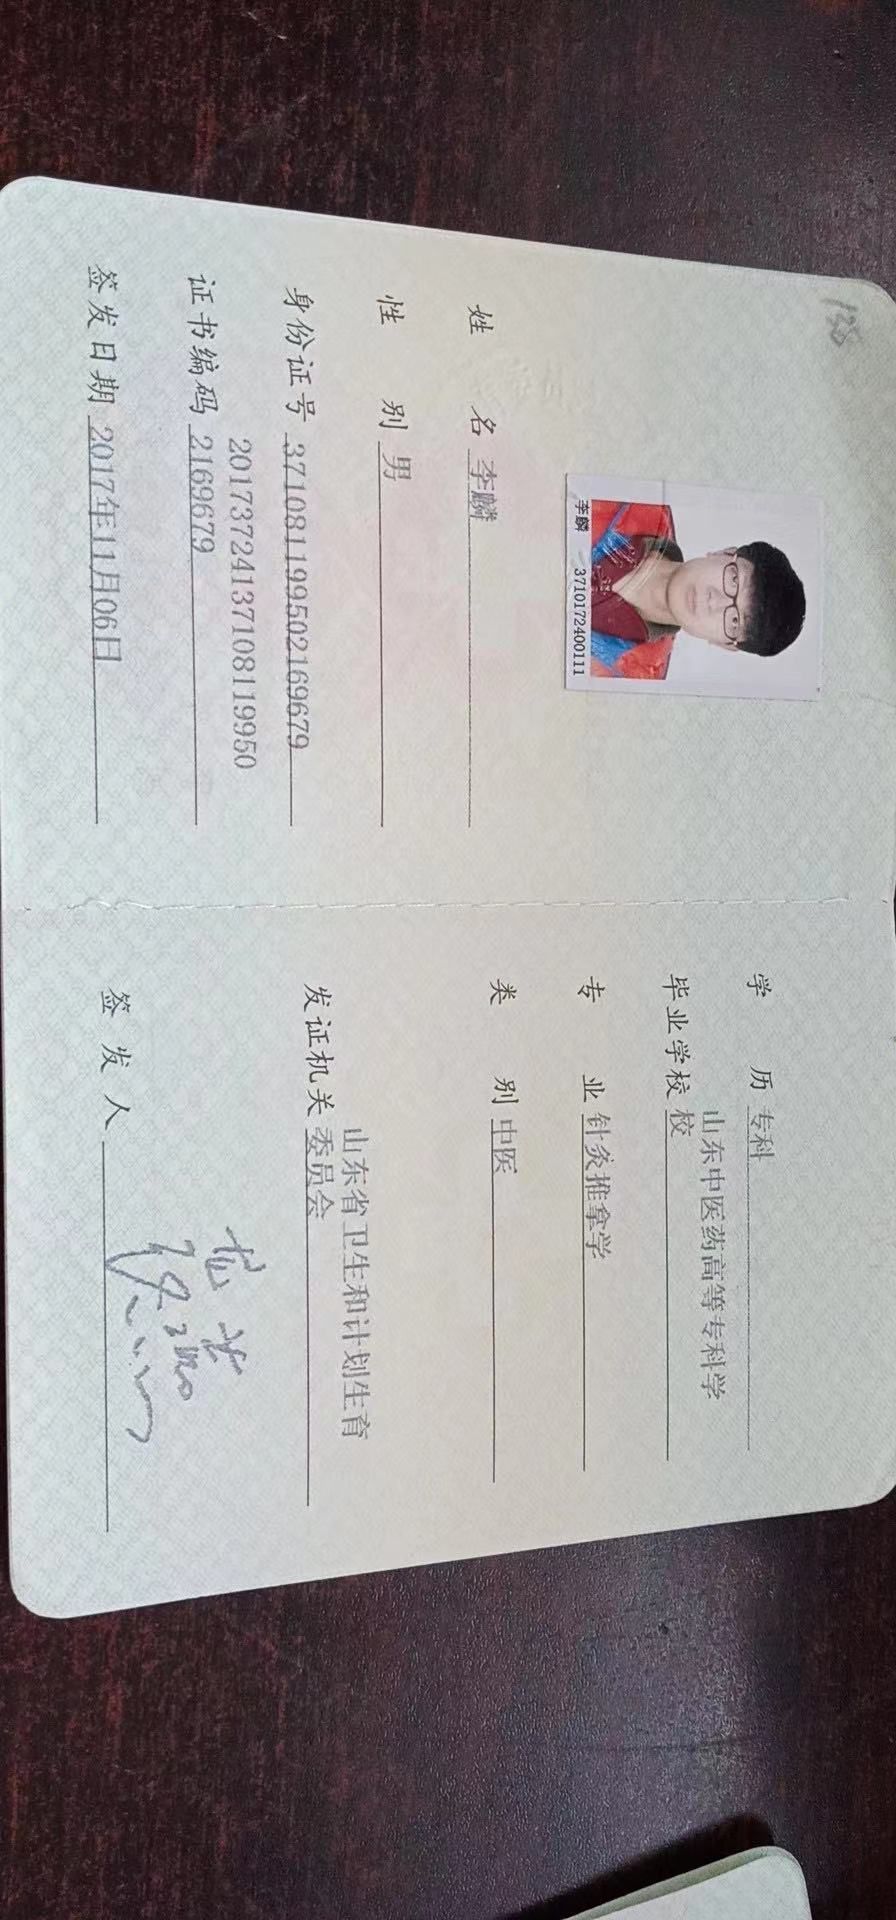 128
李麟 3710172400111
姓 名 李麟
性 别 男
身份证号 371081199502169679
20173724137108119950
证书编码 2169679
签发日期 2017年11月06日
学 历 专科
山东中医药高等专科学
毕业学校 校
专 业 针灸推拿学
类 别 中医
山东省卫生和计划生育
发证机关 委员会
签 发 人